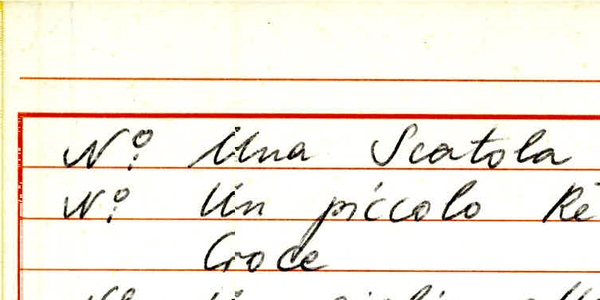 N° Una Scatola
N° Un piccolo
Croce
N°